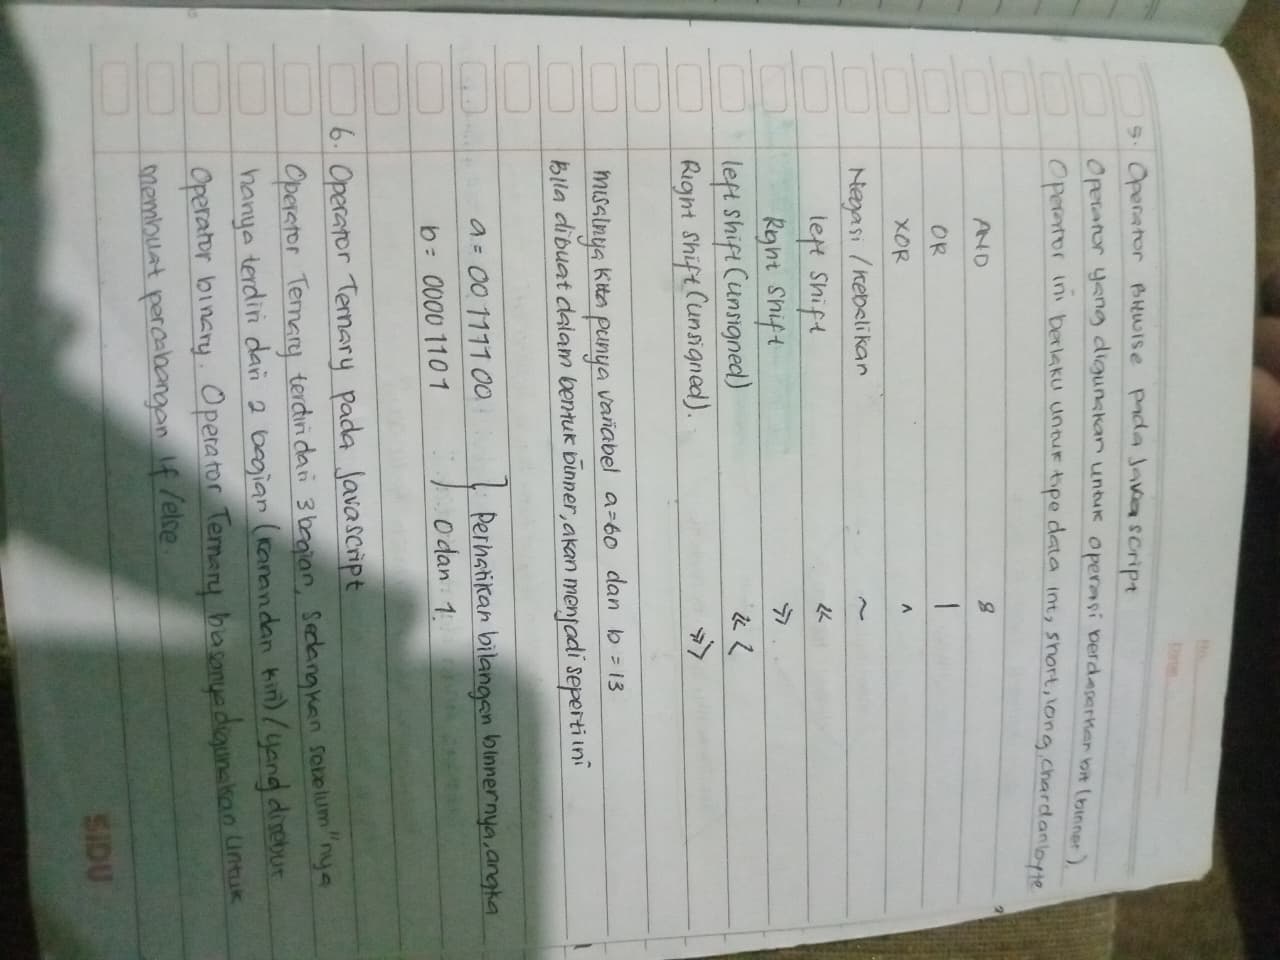 No:
Date:
5. Operator Bitwise pada Javascript
Operator yang digunakan untuk operasi berdasarkan bit (binner)
Operator ini berlaku untuk tipe data int, short, long, char dan byte
AND &
OR |
XOR ^
Negasi / kebalikan ~
left shift <<
Right shift >>
left shift (unsigned) <<<
Right shift (unsigned). >>>
misalnya kita punya variabel a=60 dan b=13
Bila dibuat dalam bentuk binner, akan menjadi seperti ini
a = 00111100 } Perhatikan bilangan binnernya, angka
b = 00001101 0 dan 1.
6. Operator Ternary pada Javascript
Operator Ternary terdiri dari 3 bagian, sedangkan sebelum"nya
hanya terdiri dari 2 bagian (kanan dan kiri) / yang disebut
Operator binary. Operator Ternary biasanya digunakan untuk
membuat percabangan if/else.
SIDU